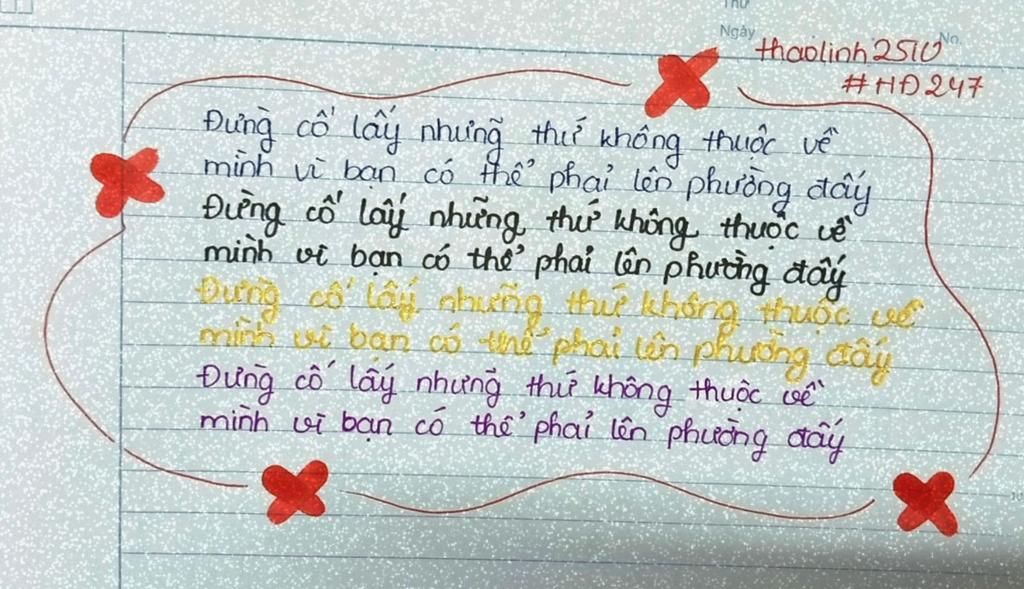 Thứ
Ngày No.
thaolinh2510
#HĐ247
Đừng cố lấy những thứ không thuộc về
mình vì bạn có thể phải lên phường đấy
Đừng cố lấy những thứ không thuộc về
mình vì bạn có thể phải lên phường đấy
Đừng cố lấy những thứ không thuộc về
mình vì bạn có thể phải lên phường đấy
Đừng cố lấy những thứ không thuộc về
mình vì bạn có thể phải lên phường đấy